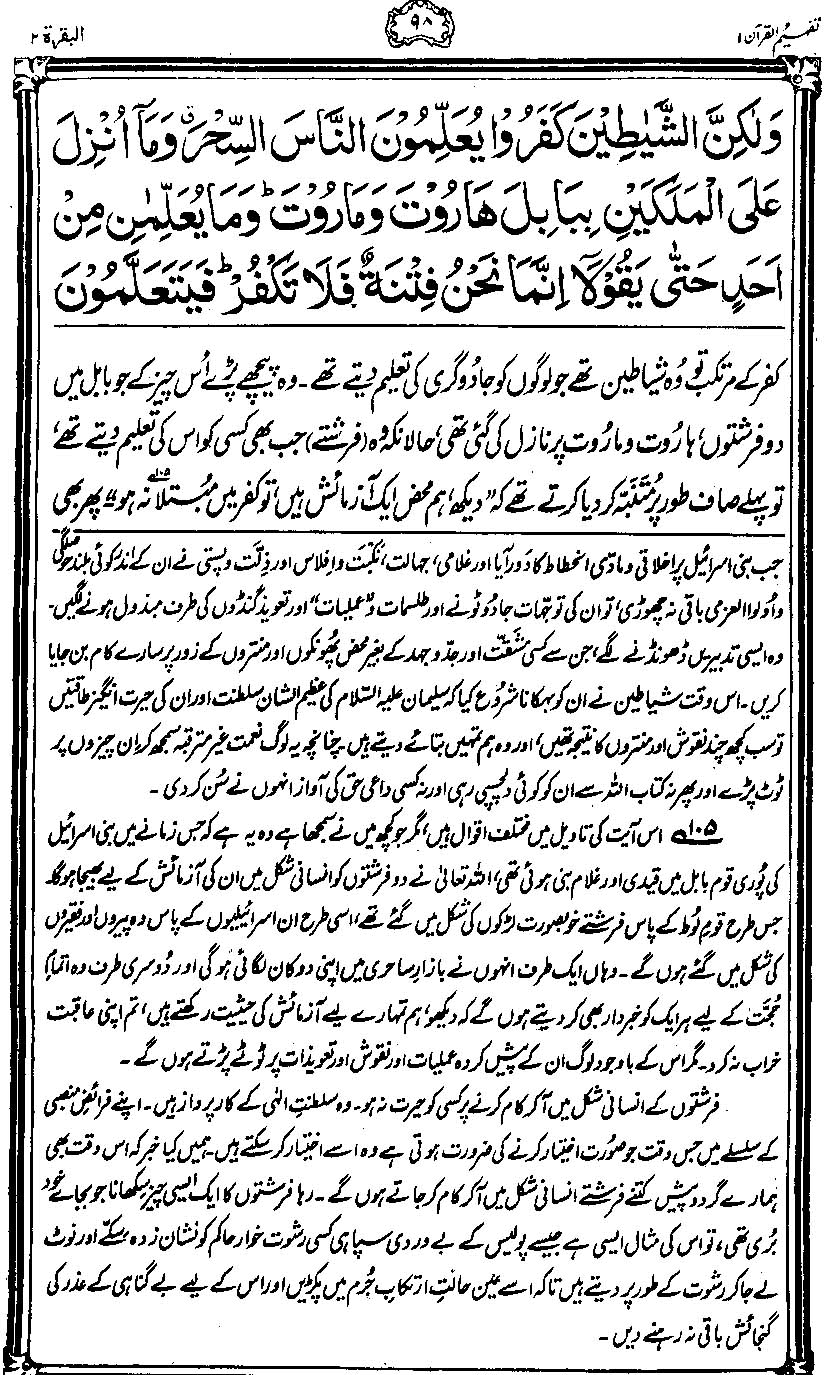 تفہیم القرآن ۱
۹۸
البقرۃ ۲
وَلٰكِنَّ الشَّيٰطِيْنَ كَفَرُوْا يُعَلِّمُوْنَ النَّاسَ السِّحْرَ ۤ وَمَاۤ اُنْزِلَ
عَلَى الْمَلَكَيْنِ بِبَابِلَ هَارُوْتَ وَمَارُوْتَ ؕ وَمَا يُعَلِّمٰنِ مِنْ
اَحَدٍ حَتّٰى يَقُوْلَاۤ اِنَّمَا نَحْنُ فِتْنَةٌ فَلَا تَكْفُرْ ؕ فَيَتَعَلَّمُوْنَ
کفر کے مرتکب تو وُہ شیاطین تھے جو لوگوں کو جادُو گری کی تعلیم دیتے تھے۔ وہ پیچھے پڑے اُس چیز کے جو بابل میں
دو فرشتوں، ہارُوت و مارُوت پر نازل کی گئی تھی، حالانکہ وہ (فرشتے) جب بھی کسی کو اس کی تعلیم دیتے تھے،
تو پہلے صاف طور پر مُتَنَبِّہ کر دیا کرتے تھے کہ ”دیکھ، ہم محض ایک آزمائش ہیں، تو کفر میں مُبتلا نہ ہو“۱۰۵ پھر بھی
جب بنی اسرائیل پر اخلاقی و مادّی انحطاط کا دَور آیا اور غلامی، جہالت، نکبَت و اِفلاس اور ذِلّت و پستی نے ان کے اندر کوئی بلند حوصلگی
و اُولوالعزمی باقی نہ چھوڑی، تو ان کی توجّہات جادُو ٹونے اور طلسمات و ”عملیات“ اور تعویذ گنڈوں کی طرف مبذول ہونے لگیں۔
وہ ایسی تدبیریں ڈھونڈنے لگے، جن سے کسی مشقّت اور جدّ و جہد کے بغیر محض پُھونکوں اور منتروں کے زور پر سارے کام بن جایا
کریں۔ اس وقت شیاطین نے ان کو بہکانا شروع کیا کہ سلیمان علیہ السّلام کی عظیم الشان سلطنت اور ان کی حیرت انگیز طاقتیں
تو سب کچھ چند نقوش اور منتروں کا نتیجہ تھیں، اور وہ ہم تمہیں بتائے دیتے ہیں۔ چنانچہ یہ لوگ نعمت غیر مترقبہ سمجھ کر ان چیزوں پر
ٹوٹ پڑے اور پھر نہ کتاب اللہ سے ان کو کوئی دلچسپی رہی اور نہ کسی داعیِ حق کی آواز انہوں نے سُن کر دی۔
۱۰۵ اس آیت کی تاویل میں مختلف اقوال ہیں، مگر جو کچھ میں نے سمجھا ہے وہ یہ ہے کہ جس زمانے میں بنی اسرائیل
کی پُوری قوم بابل میں قیدی اور غلام بنی ہوئی تھی، اللہ تعالیٰ نے دو فرشتوں کو انسانی شکل میں ان کی آزمائش کے لیے بھیجا ہوگا۔
جس طرح قومِ لُوط کے پاس فرشتے خوبصورت لڑکوں کی شکل میں گئے تھے، اسی طرح ان اسرائیلیوں کے پاس وہ پیروں اور فقیروں
کی شکل میں گئے ہوں گے۔ وہاں ایک طرف انہوں نے بازارِ ساحری میں اپنی دوکان لگائی ہو گی اور دُوسری طرف وہ اتمامِ
حُجّت کے لیے ہر ایک کو خبردار بھی کر دیتے ہوں گے کہ دیکھو، ہم تمہارے لیے آزمائش کی حیثیت رکھتے ہیں، تم اپنی عاقبت
خراب نہ کرو۔ مگر اس کے باوجود لوگ ان کے پیش کردہ عملیات اور نقوش اور تعویذات پر ٹوٹے پڑتے ہوں گے۔
فرشتوں کے انسانی شکل میں آ کر کام کرنے پر کسی کو حیرت نہ ہو۔ وہ سلطنتِ الٰہی کے کار پرداز ہیں۔ اپنے فرائضِ منصبی
کے سلسلے میں جس وقت جو صُورت اختیار کرنے کی ضرورت ہوتی ہے وہ اسے اختیار کر سکتے ہیں۔ ہمیں کیا خبر کہ اس وقت بھی
ہمارے گرد و پیش کتنے فرشتے انسانی شکل میں آ کر کام کر جاتے ہوں گے۔ رہا فرشتوں کا ایک ایسی چیز سکھانا جو بجائے خود
بُری تھی، تو اس کی مثال ایسی ہے جیسے پولیس کے بے وردی سپاہی کسی رشوت خوار حاکم کو نشان زدہ سِکّے اور نوٹ
لے جا کر رشوت کے طور پر دیتے ہیں تاکہ اسے عین حالتِ ارتکابِ جُرم میں پکڑیں اور اس کے لیے بے گناہی کے عذر کی
گنجائش باقی نہ رہنے دیں۔